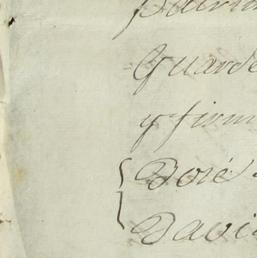 Guarde
y firm
José
Davi